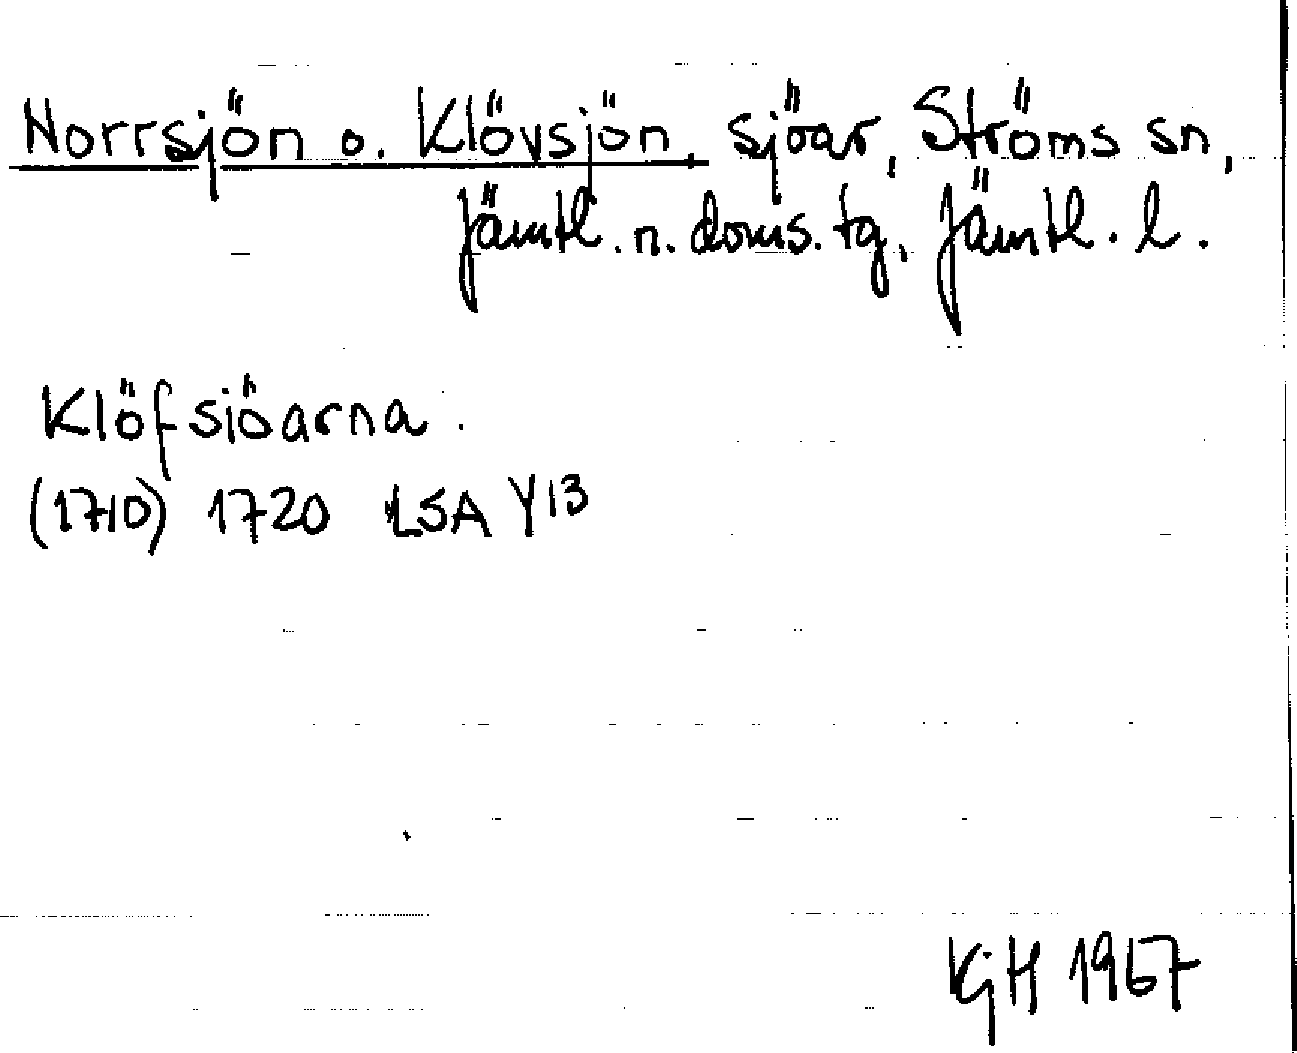 Norrsjön o. Klövsjön, sjöar, Ströms sn,
Jämtl. n. doms. tg, Jämtl. l.
Klöfsiöarna.
(1710) 1720 LSA Y13
KjH 1967